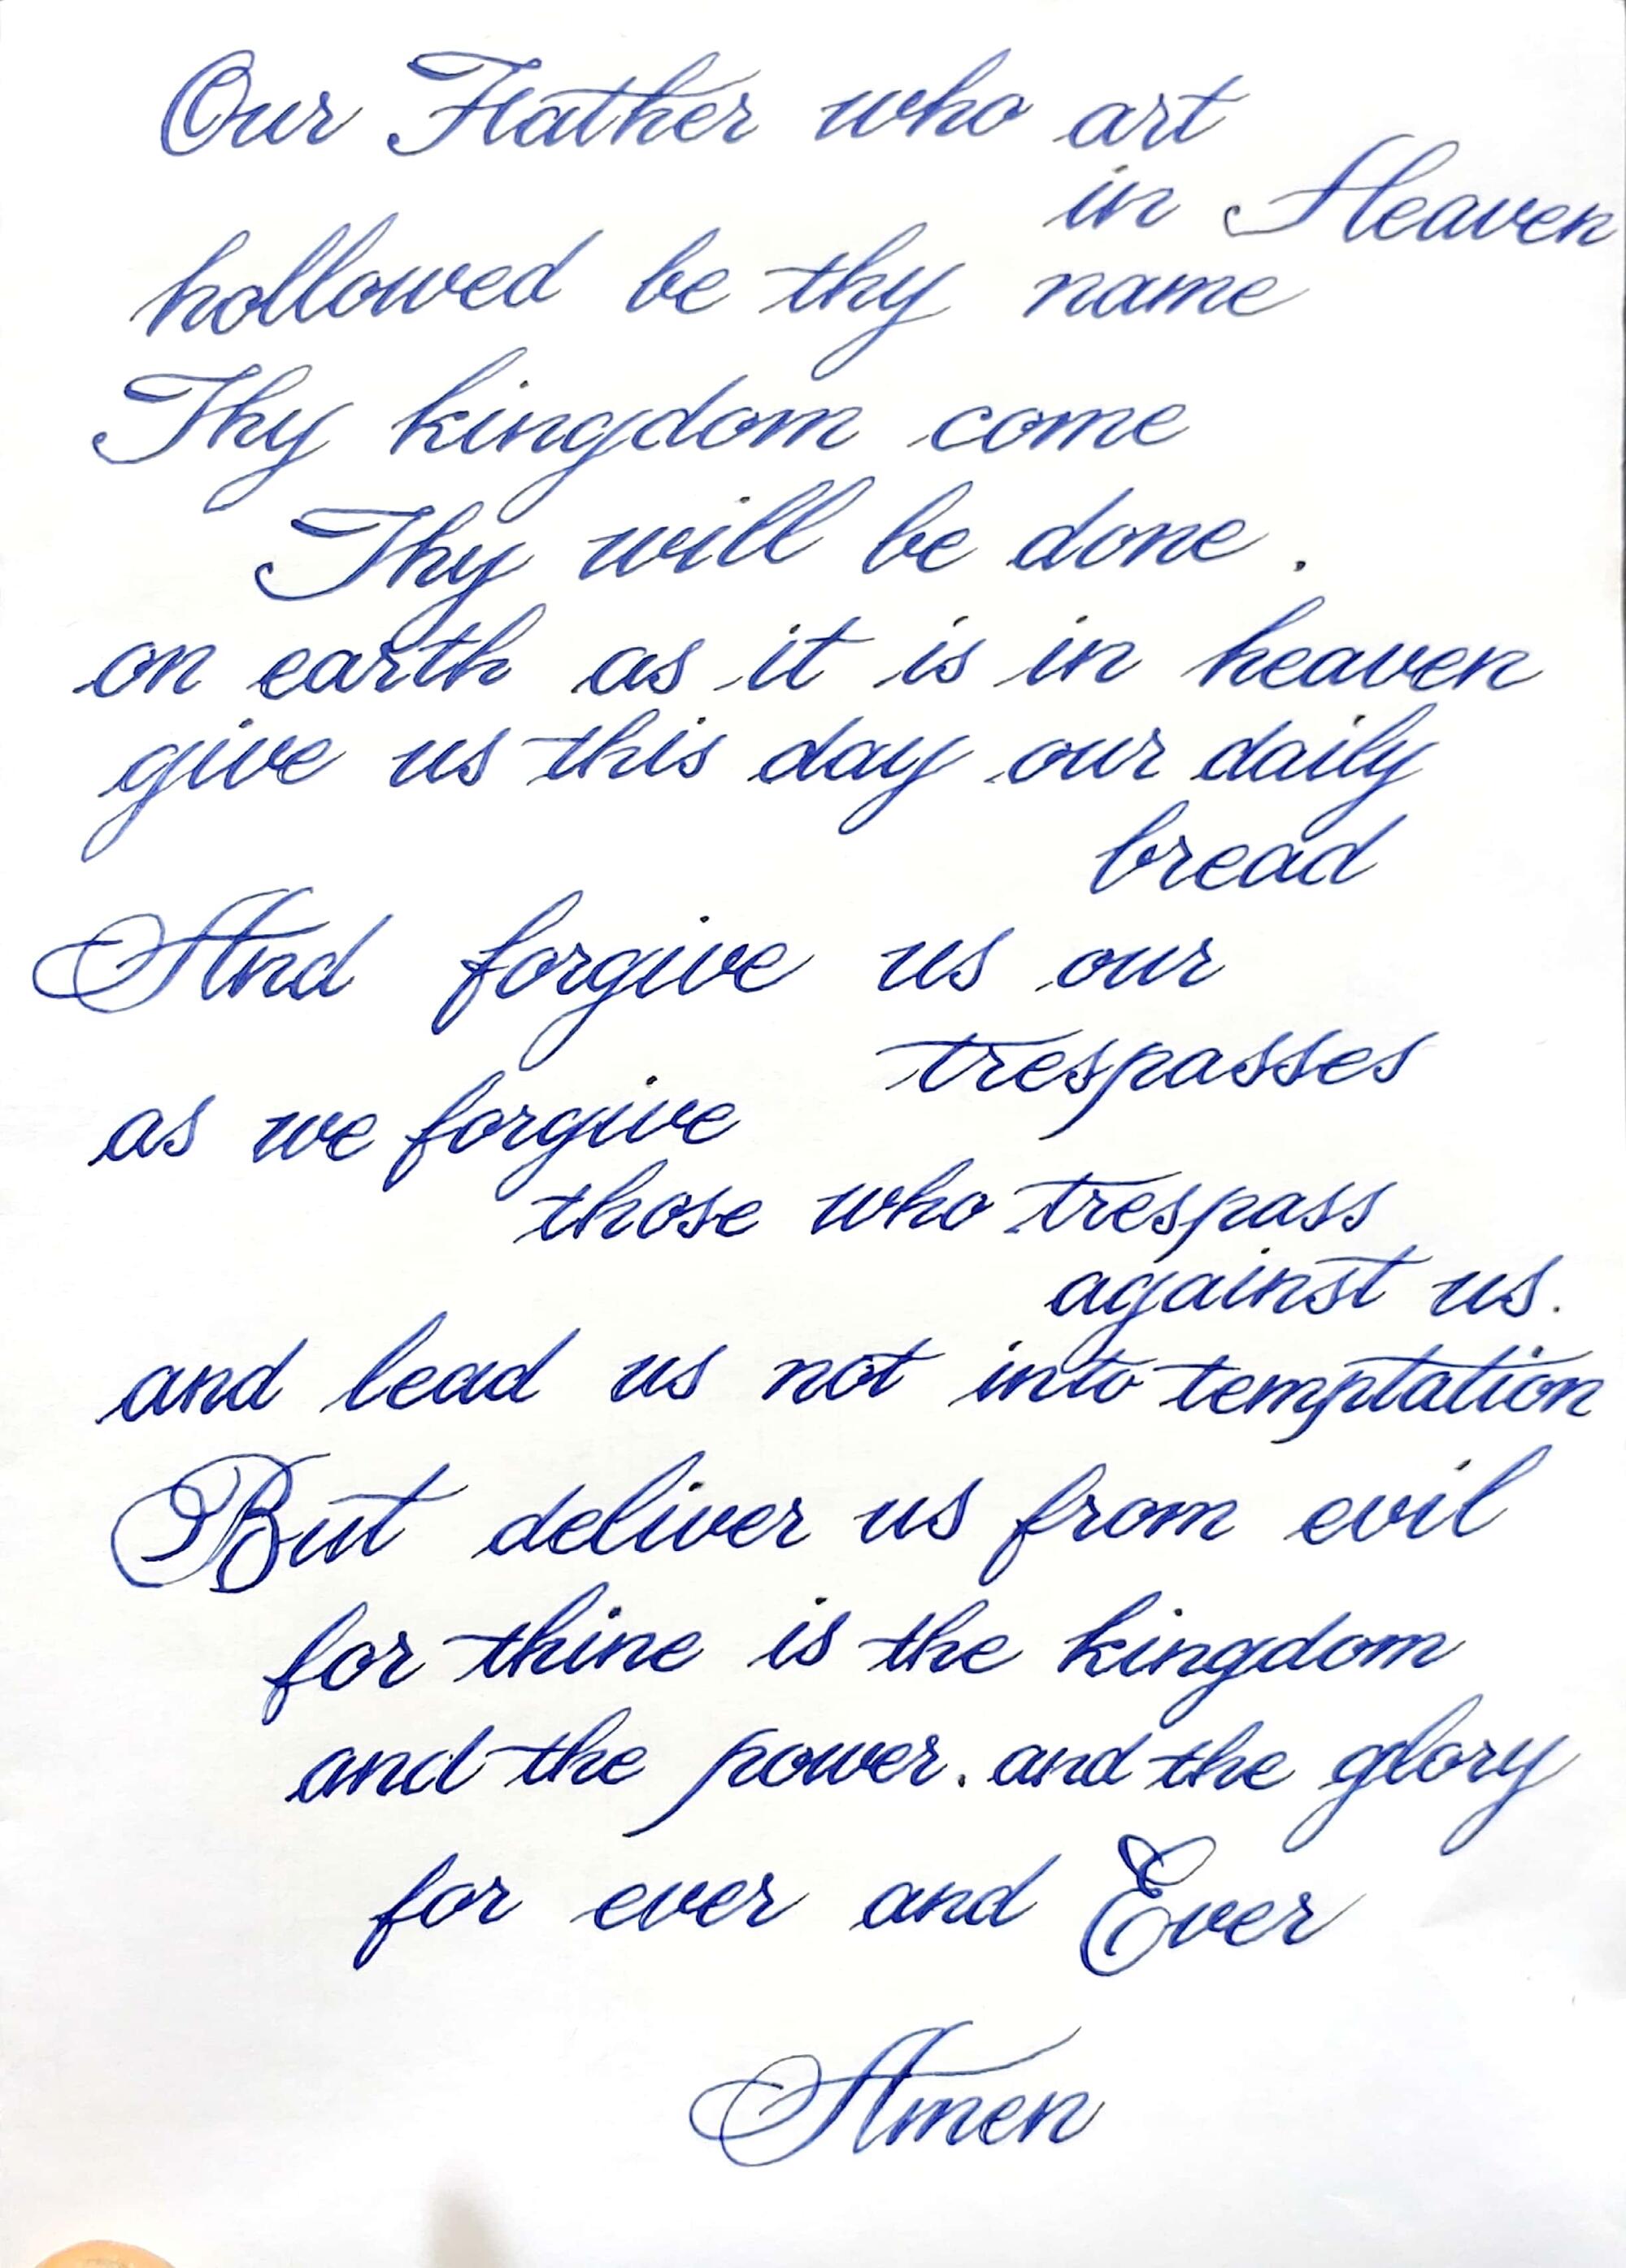 Our Father who art
in Heaven
hollowed be thy name
Thy kingdom come
Thy will be done.
on earth as it is in heaven
give us this day our daily
bread
And forgive us our
trespasses
as we forgive
those who trespass
against us.
and lead us not into temptation
But deliver us from evil
for thine is the kingdom
and the power. and the glory
for ever and Ever
Amen